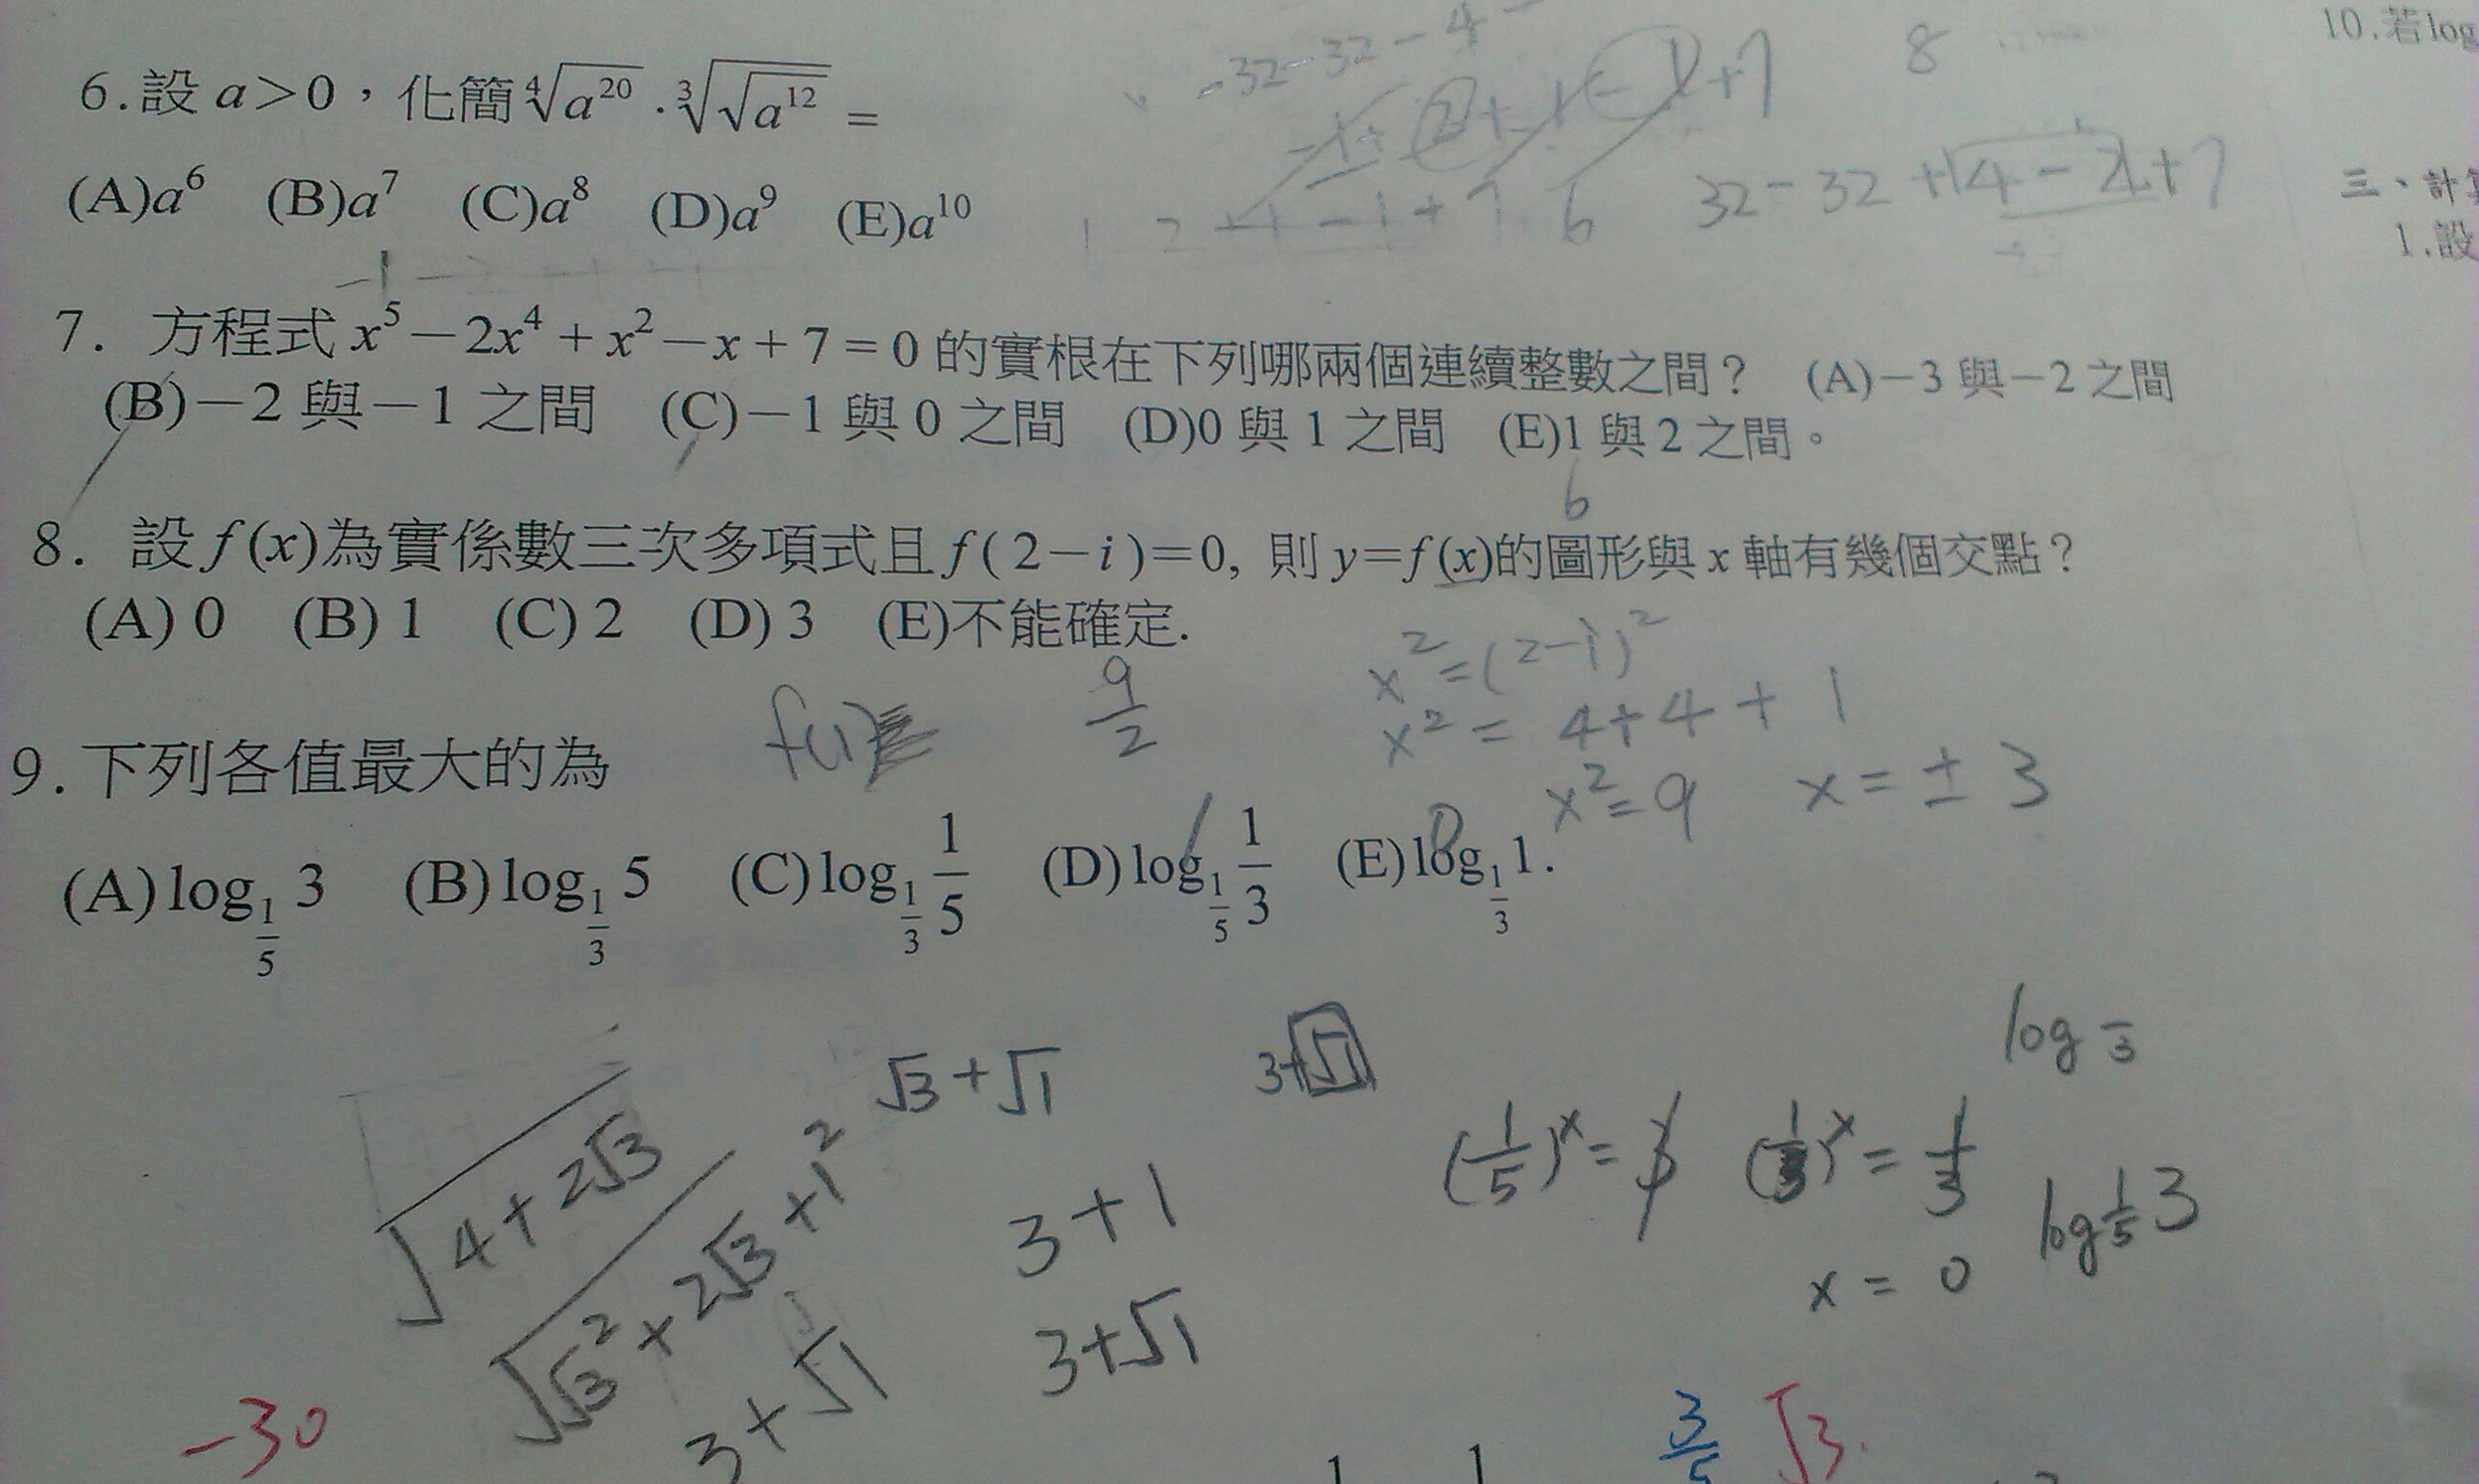 -32-32-4
8
10.若log
6.設 a>0，化簡 ⁴√(a²⁰)．³√(√(a¹²)) =
-1+2+1-1+7
(A)a⁶ (B)a⁷ (C)a⁸ (D)a⁹ (E)a¹⁰
1 2+1-1+7 6
32-32+4-2+7
三、計
1.設
-1-2
7. 方程式 x⁵-2x⁴+x²-x+7=0 的實根在下列哪兩個連續整數之間？ (A)-3 與-2 之間
(B)-2 與-1 之間 (C)-1 與 0 之間 (D)0 與 1 之間 (E)1 與 2 之間。
6
8. 設 f(x)為實係數三次多項式且 f(2-i)=0, 則 y=f(x)的圖形與 x 軸有幾個交點？
(A) 0 (B) 1 (C) 2 (D) 3 (E)不能確定.
x²=(2-i)²
f(1)
9/2
x²=4+4+1
9.下列各值最大的為
x²=9 x=±3
0
(A) log_(1/5) 3 (B) log_(1/3) 5 (C) log_(1/3) 1/5 (D) log_(1/5) 1/3 (E) log_(1/3) 1.
√3+√1
3+√1
log
3
√(4+2√3)
(1/5)ˣ=
(1/3)ˣ=1/3
√(√3²+2√3+1²)
3+1
log 1/5 3
x=0
3+√1
3+√1
-30
3/5
√3
1 1